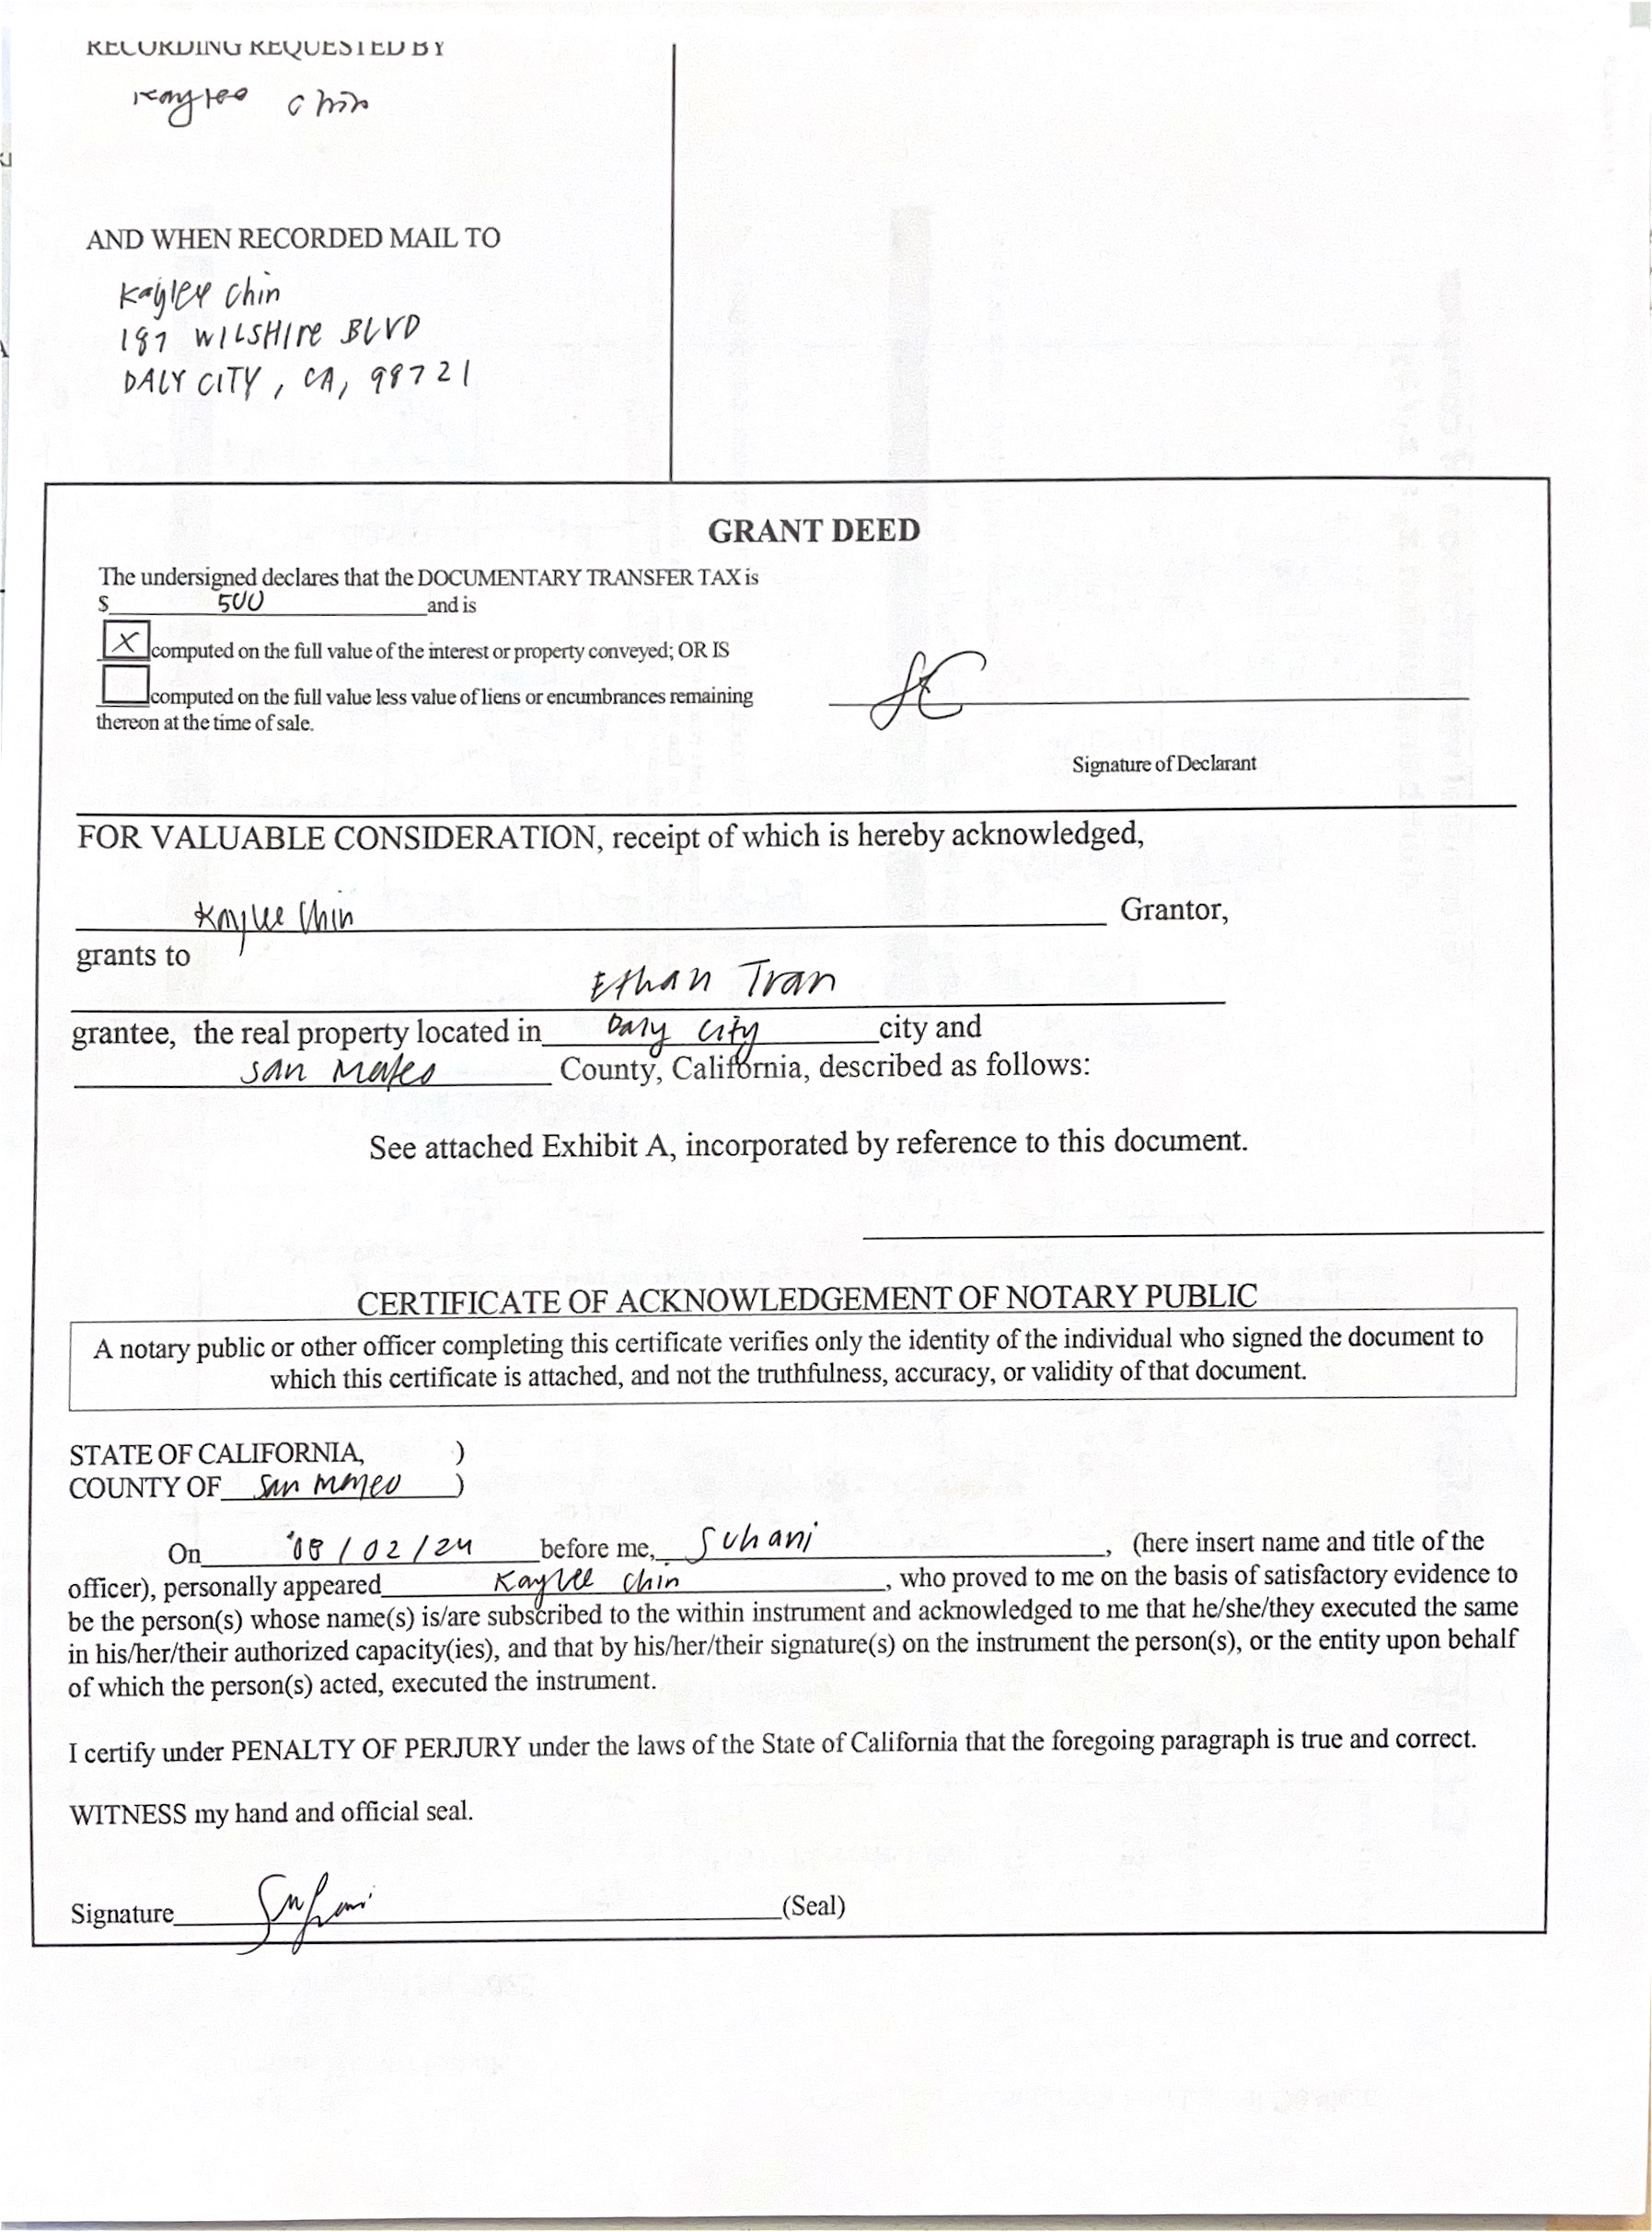 RECORDING REQUESTED BY
Kaylee Chin
AND WHEN RECORDED MAIL TO
Kaylee Chin
187 WILSHIRE BLVD
DALY CITY, CA, 98721
GRANT DEED
The undersigned declares that the DOCUMENTARY TRANSFER TAX is
$ 500 and is
X computed on the full value of the interest or property conveyed; OR IS
computed on the full value less value of liens or encumbrances remaining
thereon at the time of sale.
Signature of Declarant
FOR VALUABLE CONSIDERATION, receipt of which is hereby acknowledged,
Kaylee Chin Grantor,
grants to
Ethan Tran
grantee, the real property located in Daly City city and
San Mateo County, California, described as follows:
See attached Exhibit A, incorporated by reference to this document.
CERTIFICATE OF ACKNOWLEDGEMENT OF NOTARY PUBLIC
A notary public or other officer completing this certificate verifies only the identity of the individual who signed the document to
which this certificate is attached, and not the truthfulness, accuracy, or validity of that document.
STATE OF CALIFORNIA, )
COUNTY OF San Mateo )
On 08/02/24 before me, Suhani, (here insert name and title of the
officer), personally appeared Kaylee Chin, who proved to me on the basis of satisfactory evidence to
be the person(s) whose name(s) is/are subscribed to the within instrument and acknowledged to me that he/she/they executed the same
in his/her/their authorized capacity(ies), and that by his/her/their signature(s) on the instrument the person(s), or the entity upon behalf
of which the person(s) acted, executed the instrument.
I certify under PENALTY OF PERJURY under the laws of the State of California that the foregoing paragraph is true and correct.
WITNESS my hand and official seal.
Signature Suhani (Seal)